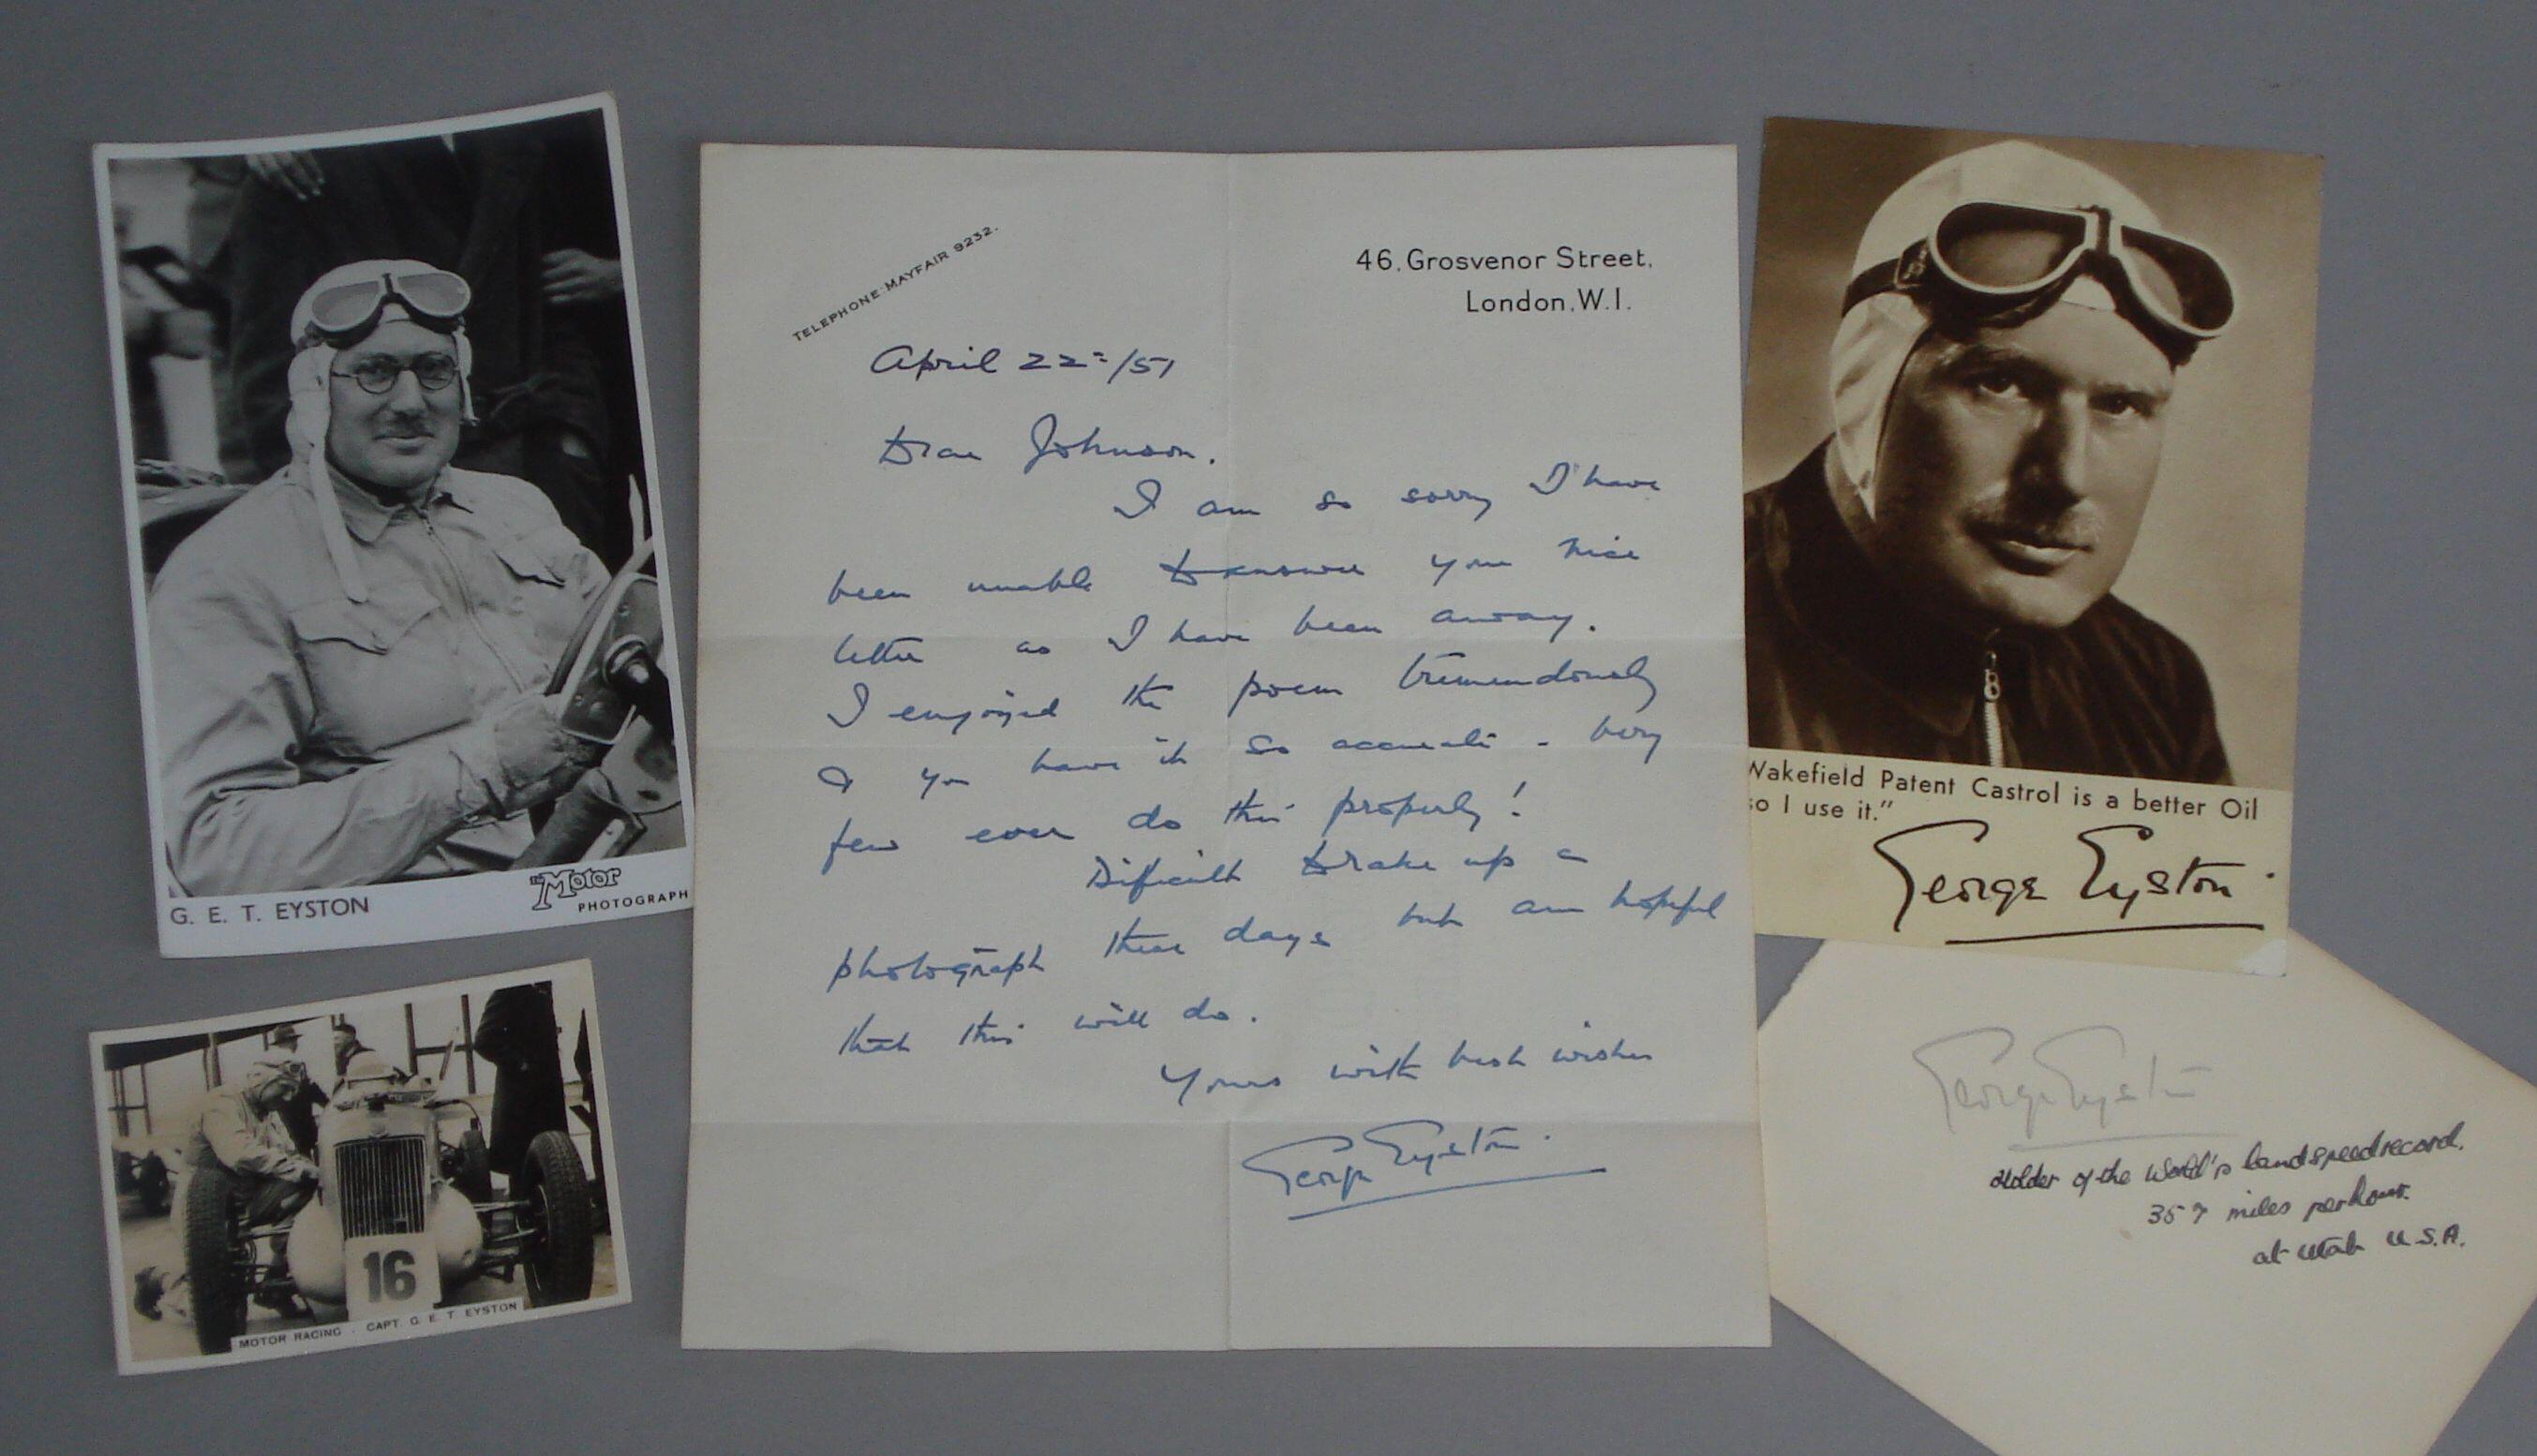 G. E. T. EYSTON
The Motor
PHOTOGRAPH
MOTOR RACING · CAPT. G. E. T. EYSTON
16
TELEPHONE·MAYFAIR 9232.
46, Grosvenor Street,
London, W.1.
April 22=/51
Dear Johnson.
I am so sorry I have
been unable to answer your nice
letter as I have been away.
I enjoyed the poem tremendously
& you have it so accurate - very
few ever do this properly!
Difficult to rake up a
photograph these days but am hopeful
that this will do.
Yours with best wishes
George Eyston.
Wakefield Patent Castrol is a better Oil
so I use it."
George Eyston.
George Eyston
Holder of the World's land speed record.
357 miles per hour.
at Utah U.S.A.